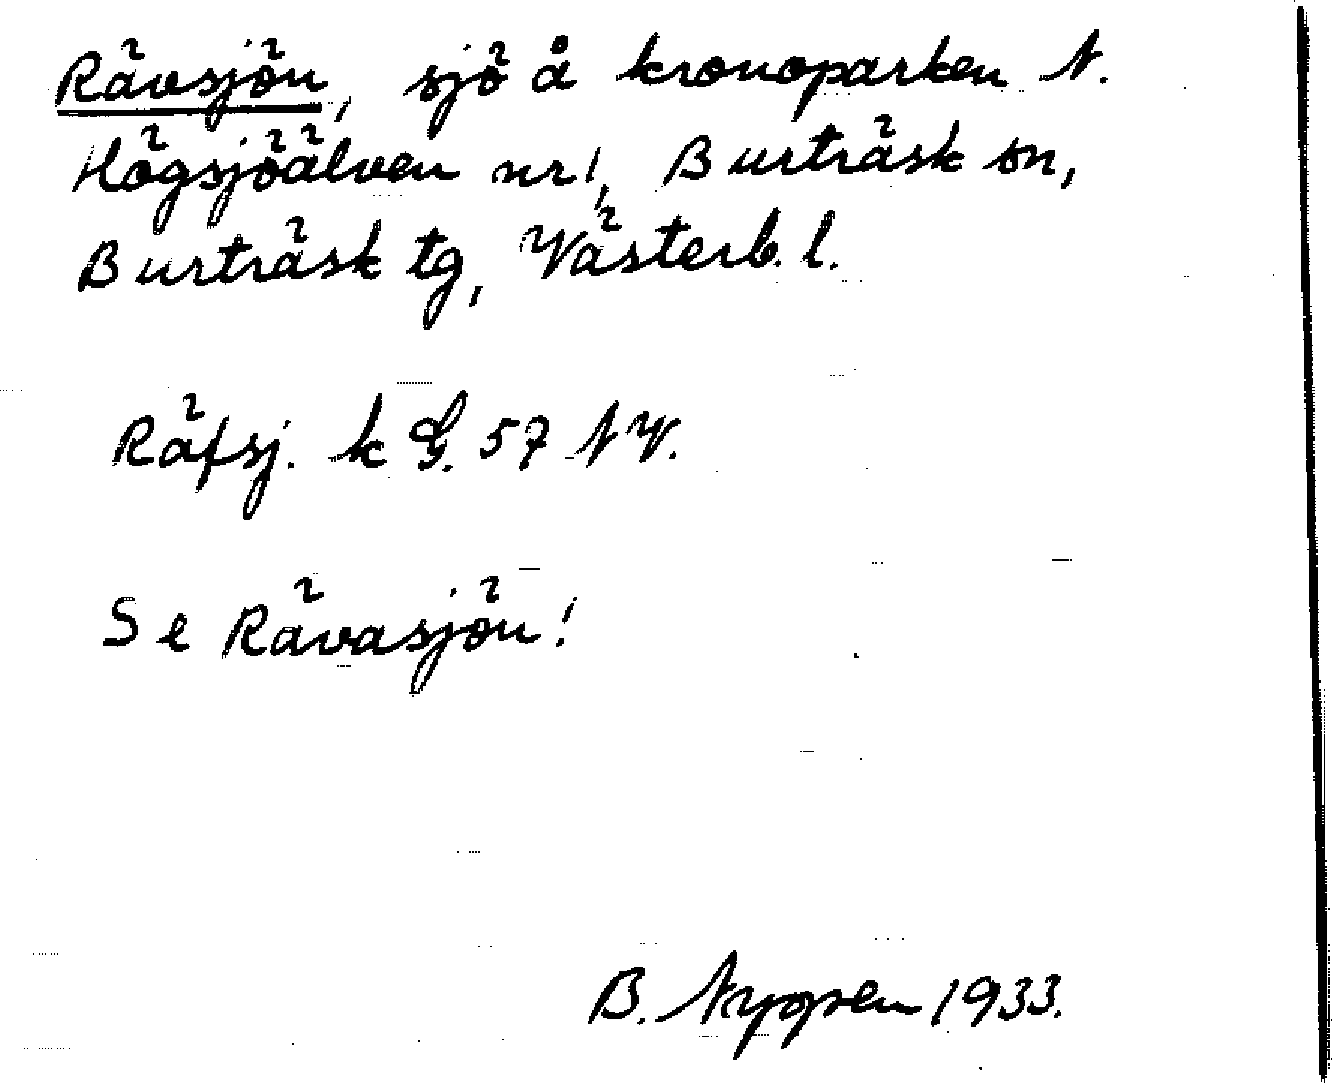 Rävsjön, sjö å kronoparken N.
Högsjöälven nr 1, Burträsk sn,
Burträsk tg, Västerb. l.
Räfsj. k G. 57 NV.
Se Rävasjön!
B. 1933.